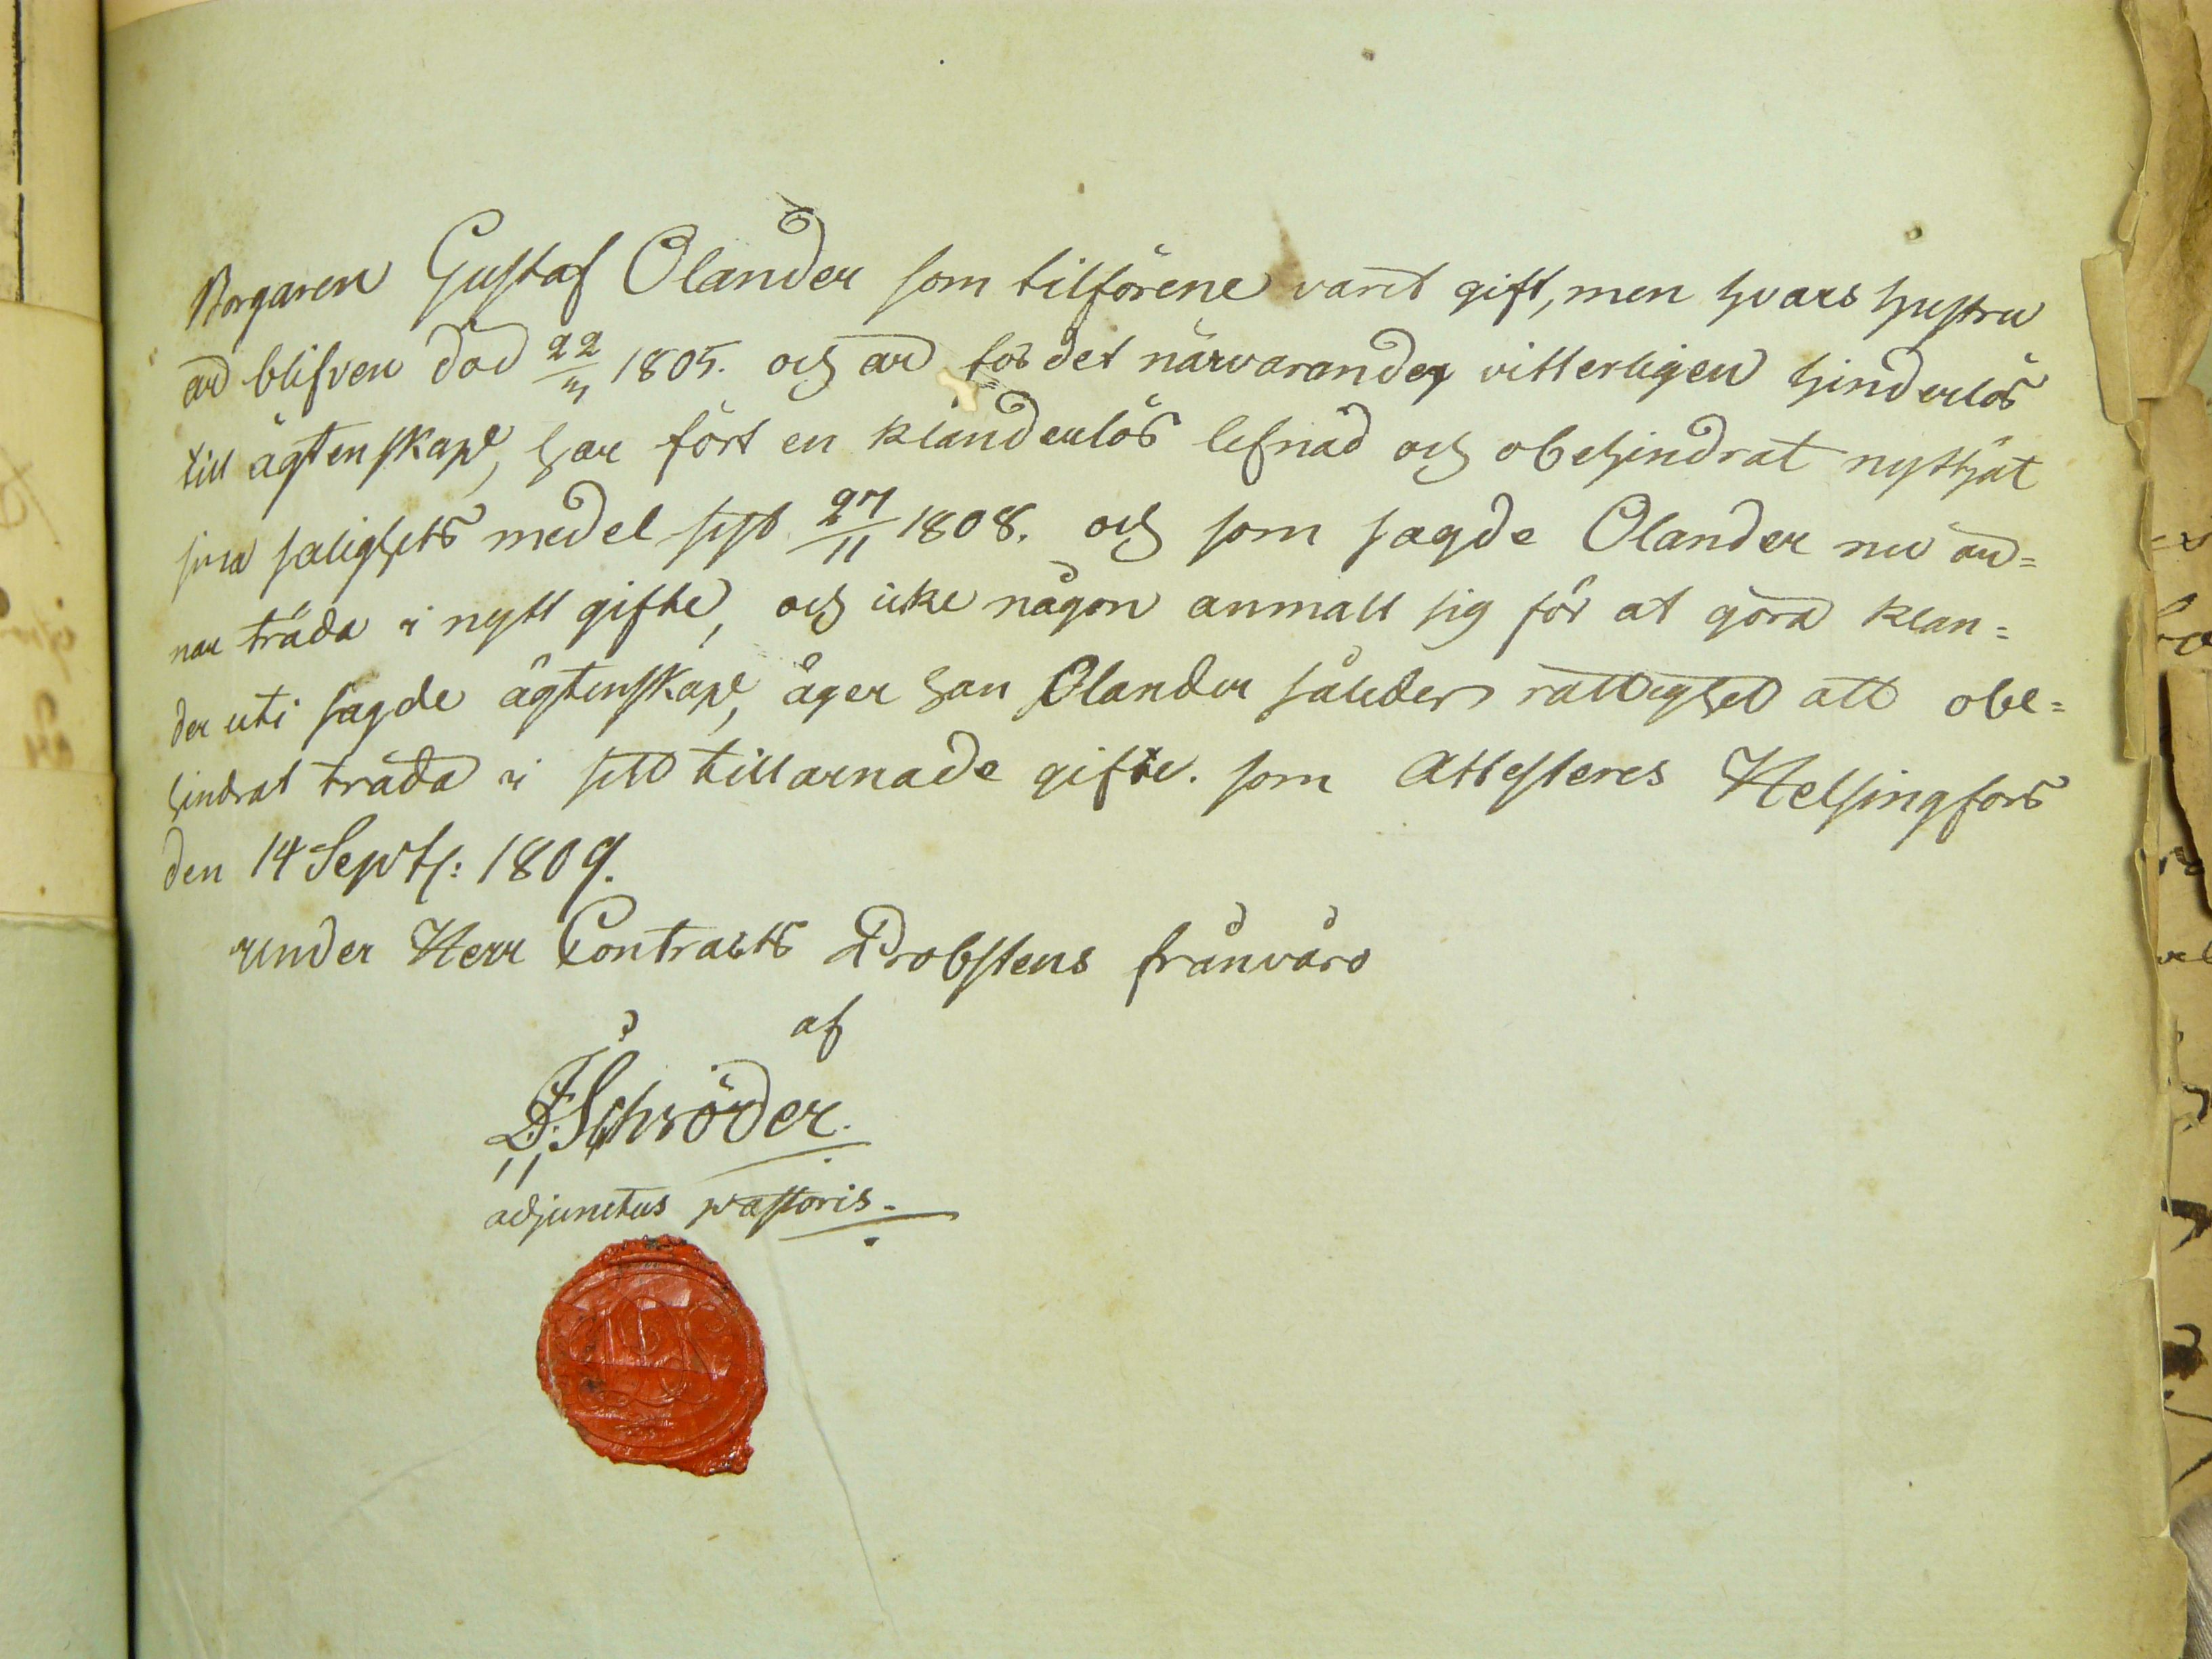 Borgaren Gustaf Olander som tilförene varit gift, men hvars hustru
är blifven död 22/III 1805. och är för det närvarande vitterligen hinderlös
till ägtenskap, har fört en klanderlös lefnad och obehindrat nyttjat
sina salighets medel sist 27/11 1808. och som sagde Olander nu äm=
nar träda i nytt gifte, och icke någon anmält sig för at göra klan=
der uti sagde ägtenskap, äger han Olander således rättighet att obe=
hindrat träda i sitt tillärnade gifte. som Attesteres Helsingfors
den 14 Sept: 1809.
under Herr Contracts Probstens frånvaro
af
Schröder.
adjunctus pastoris.